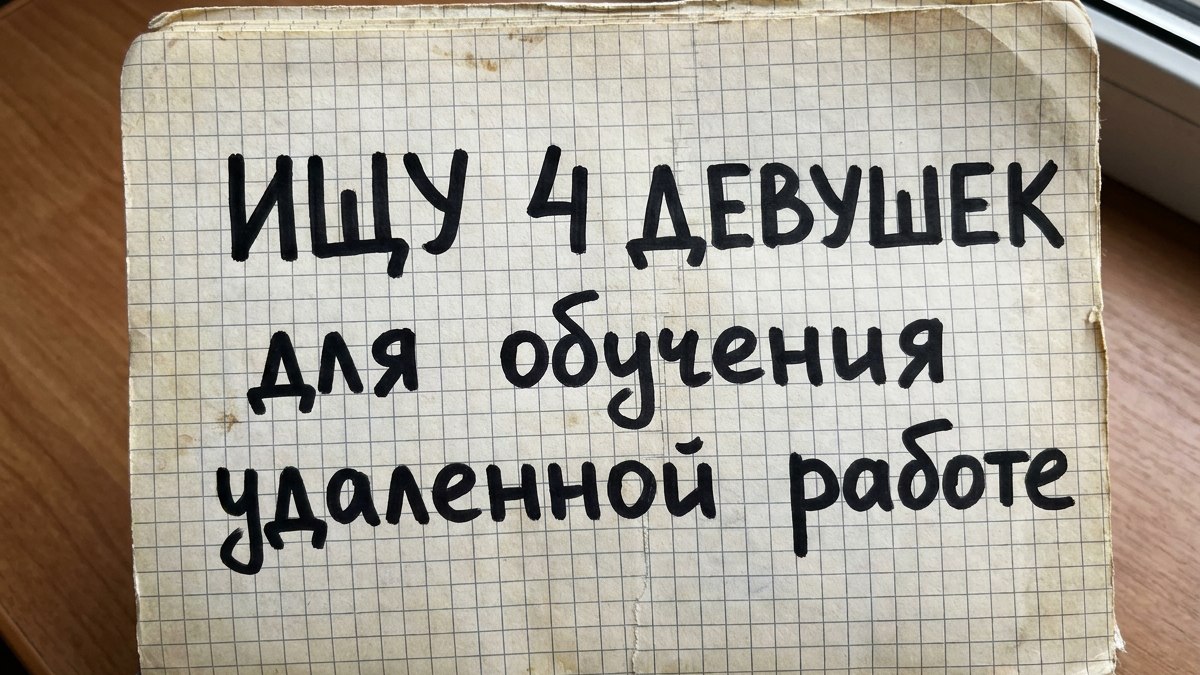 ИЩУ 4 ДЕВУШЕК
для обучения
удаленной работе